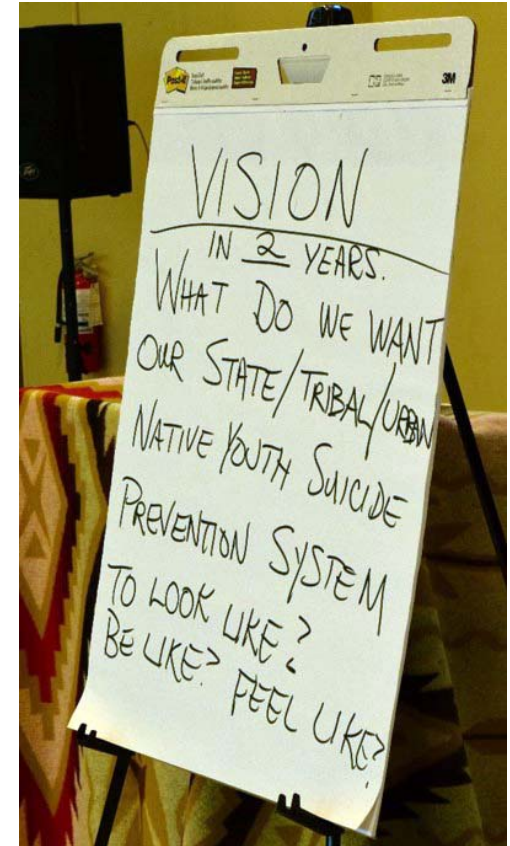 Post-it
3M
VISION
IN 2 YEARS.
WHAT DO WE WANT
OUR STATE/TRIBAL/URBAN
NATIVE YOUTH SUICIDE
PREVENTION SYSTEM
TO LOOK LIKE?
BE LIKE? FEEL LIKE?